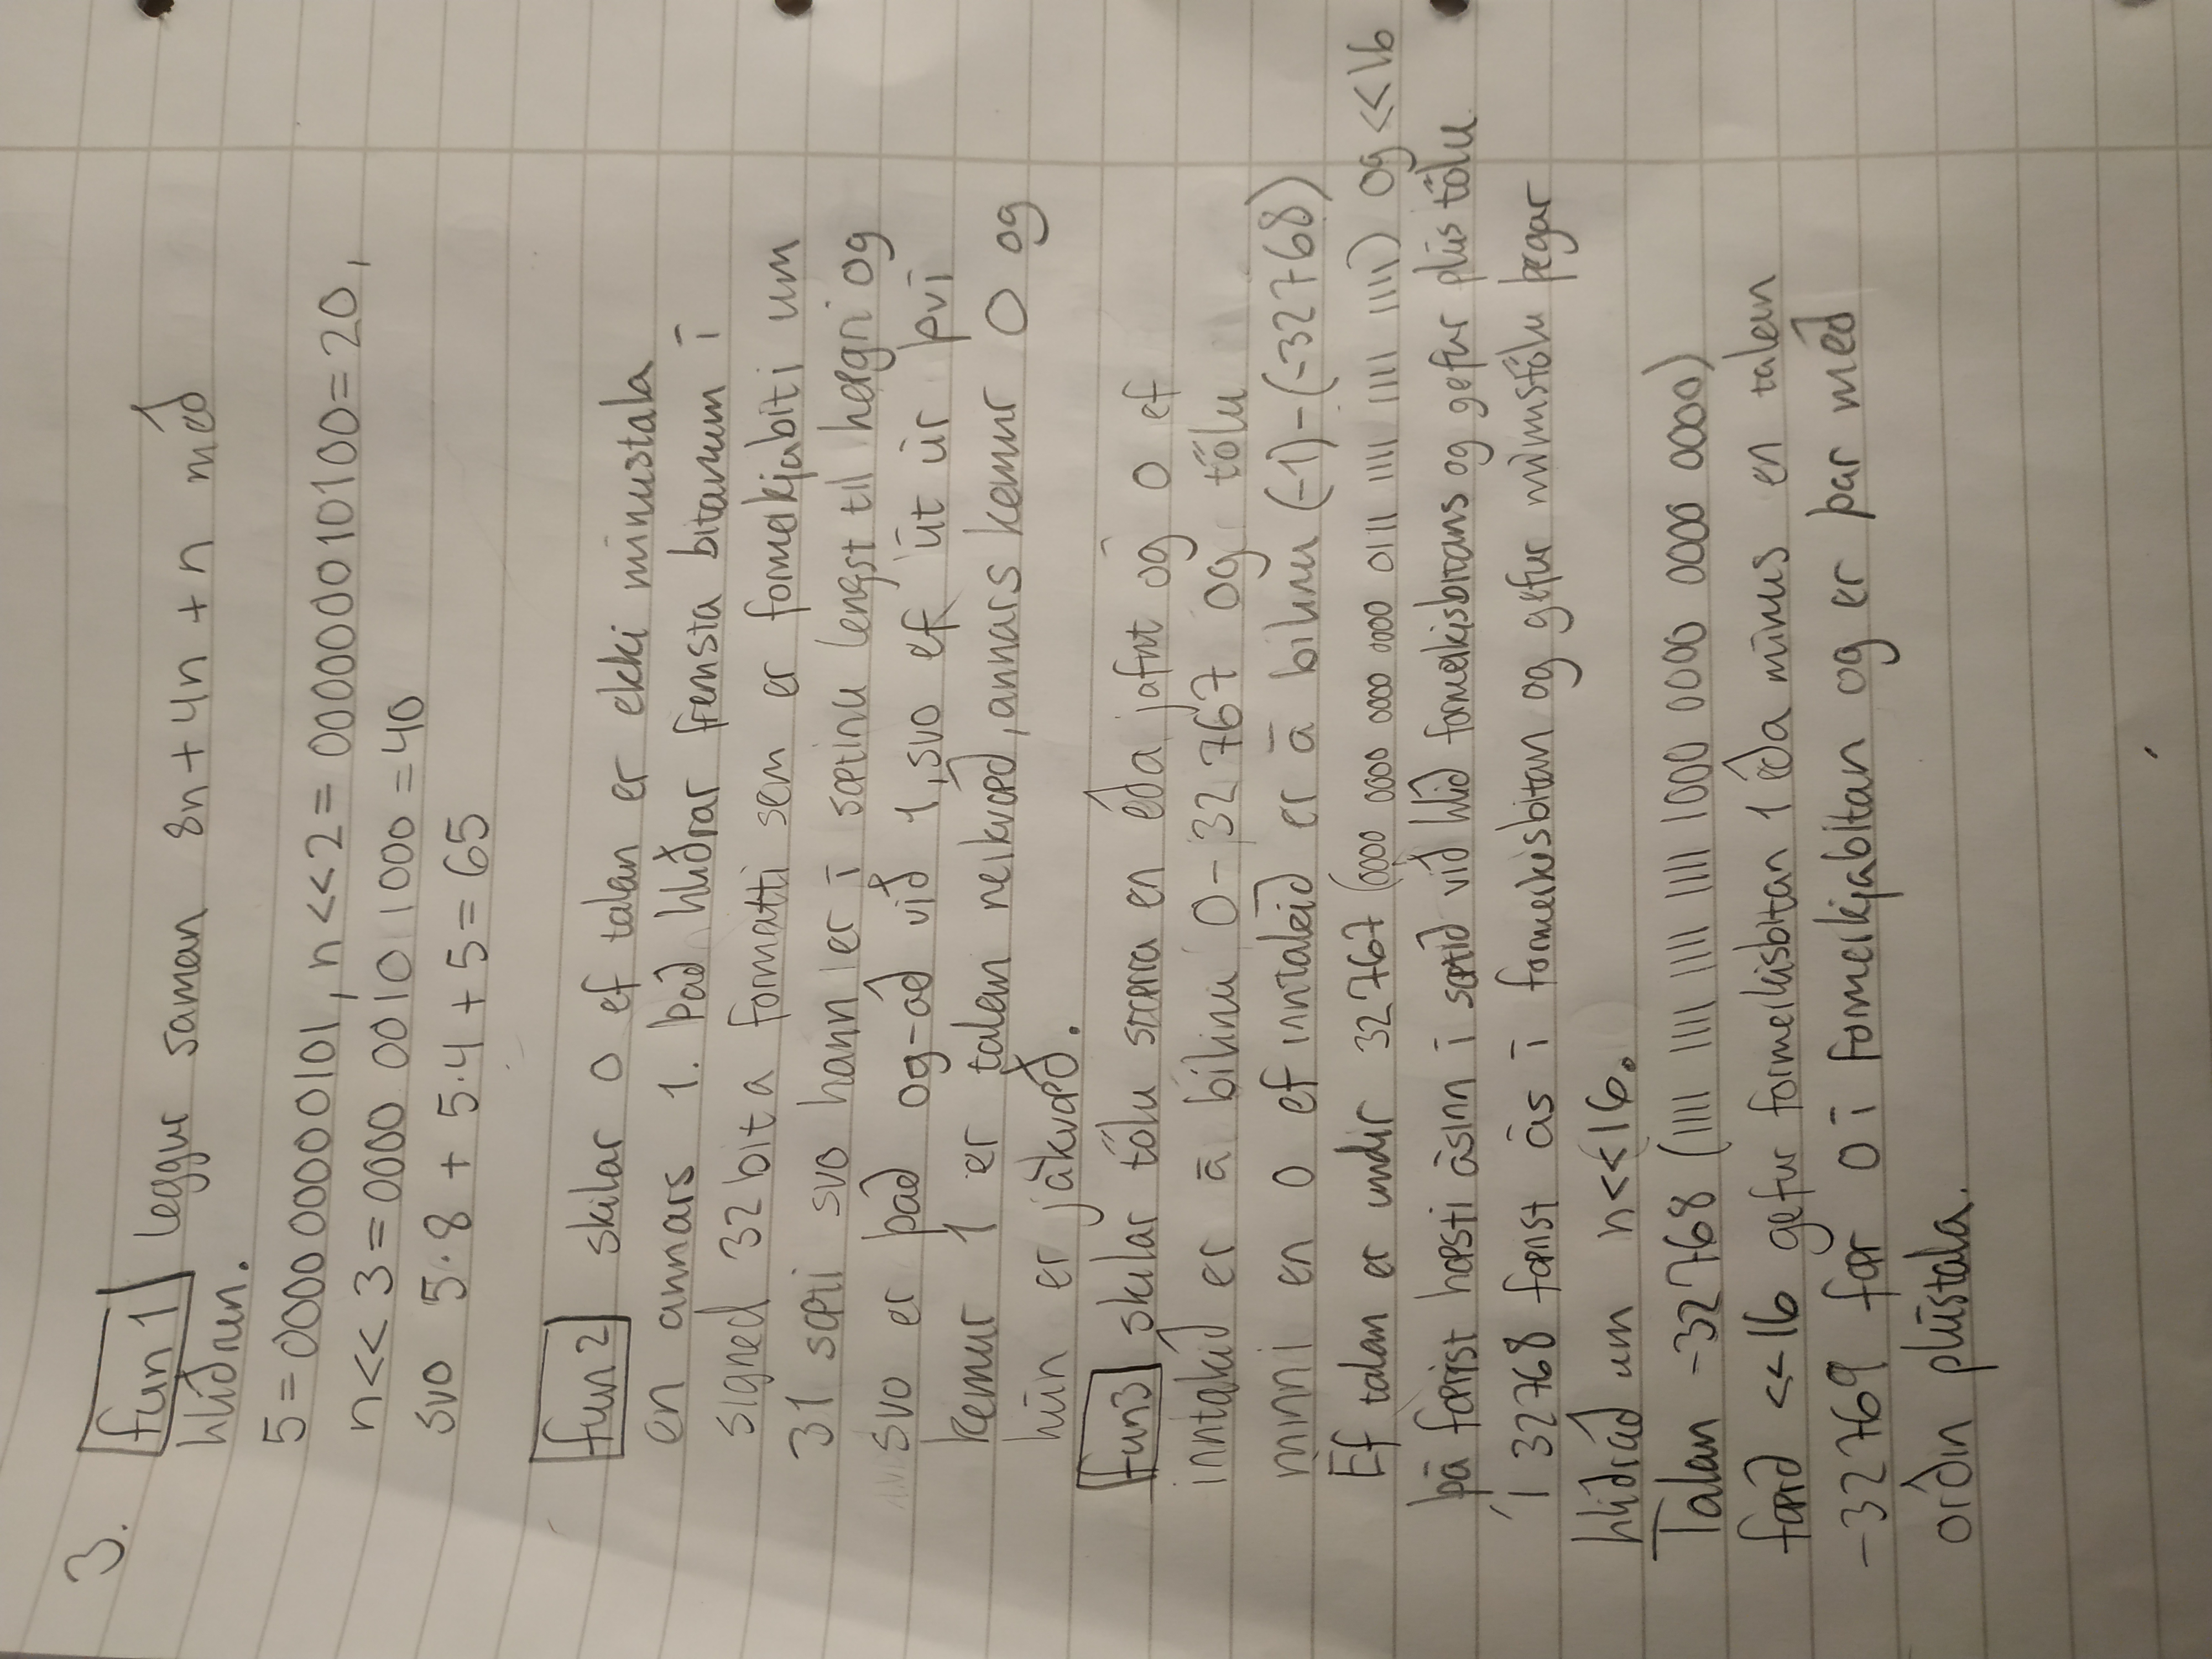 3. fun 1 leggur saman 8n + 4n + n með
hliðrun.
5 = 0000 00000101, n<<2 = 000000010100 = 20,
n<< 3 = 0000 0010 1000 = 40
svo 5·8 + 5·4 + 5 = 65
fun 2 skilar 0 ef talan er ekki mínustala
en annars 1. Það hliðrar fremsta bitanum í
signed 32 bita formatti sem er formerkjabiti um
31 sæti svo hann er í sætinu lengst til hægri og
svo er það og-að við 1, svo ef út úr því
kemur 1 er talan neikvæð, annars kemur 0 og
hún er jákvæð.
fun3 skilar tölu stærra en eða jafnt og 0 ef
inntakið er á bilinu 0 - 32 767 og tölu
minni en 0 ef inntakið er á bilinu (-1) - (-32768)
Ef talan er undir 32 767 (0000 0000 0000 0000 0111 1111 1111 1111) og <<16
þá færist hæsti ásinn í sætið við hlið formerkisbitans og gefur plús tölu
Í 32768 færist ás í formerkisbitan og gefur mínustölu þegar
hliðrað um n<<16.
Talan -32768 (1111 1111 1111 1111 1000 0000 0000 0000)
færð <<16 gefur formerkisbitan 1 eða mínus en talan
-32769 fær 0 í formerkjabitan og er þar með
orðin plústala.